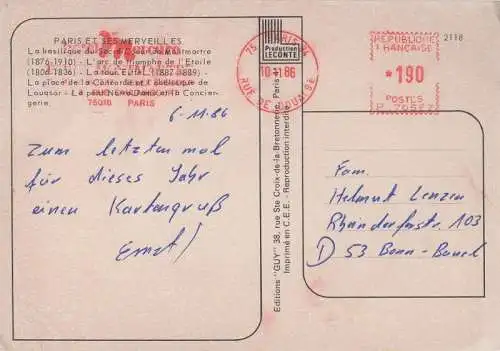 PARIS ET SES MERVEILLES
La basilique du Sacré-Coeur de Montmartre
(1876-1910) - L'arc de triomphe de l'Etoile
(1806-1836) - La tour Eiffel (1887-1889) -
La place de la Concorde et l'obélisque de
Louqsor - Le pont Neuf et la Concier-
gerie.
75018 PARIS
6-11.86
Zum letzten mal
für dieses Jahr
einen Kartengruß
Ernst!
Production
LECONTE
Editions "GUY" 38, rue Ste Croix-de-la Bretonnerie - Paris
Imprimé en C.E.E. - Reproduction interdite
75 PARIS
10-11 86
RUE DE DOUAI 9E
REPUBLIQUE
FRANÇAISE
*190
POSTES
2118
Fam.
Helmut Lenzen
Rheindorferstr. 103
D 53 Bonn-Beuel